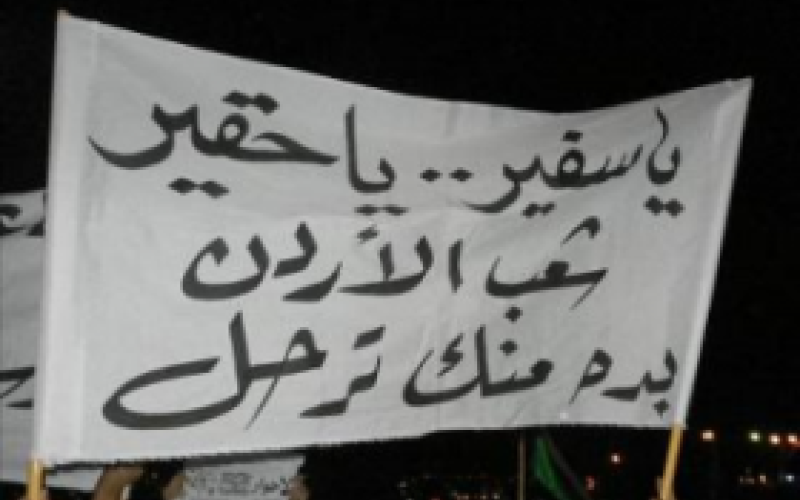 يا سفير.. يا حقير
شعب الأردن
بده منك ترحل